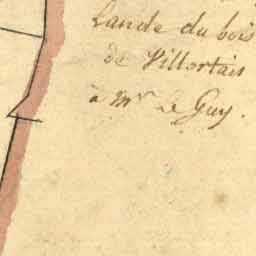 Lande du bois
de Villortais
à Mr le Guy.